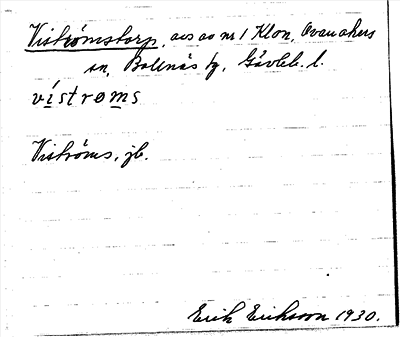 Viströmstorp, avs av nr 1 Klon, Ovanåkers
sn, Bollnäs tg, Gävleb. l.
vístrøms
Viströms, jb.
Erik Eriksson 1930.